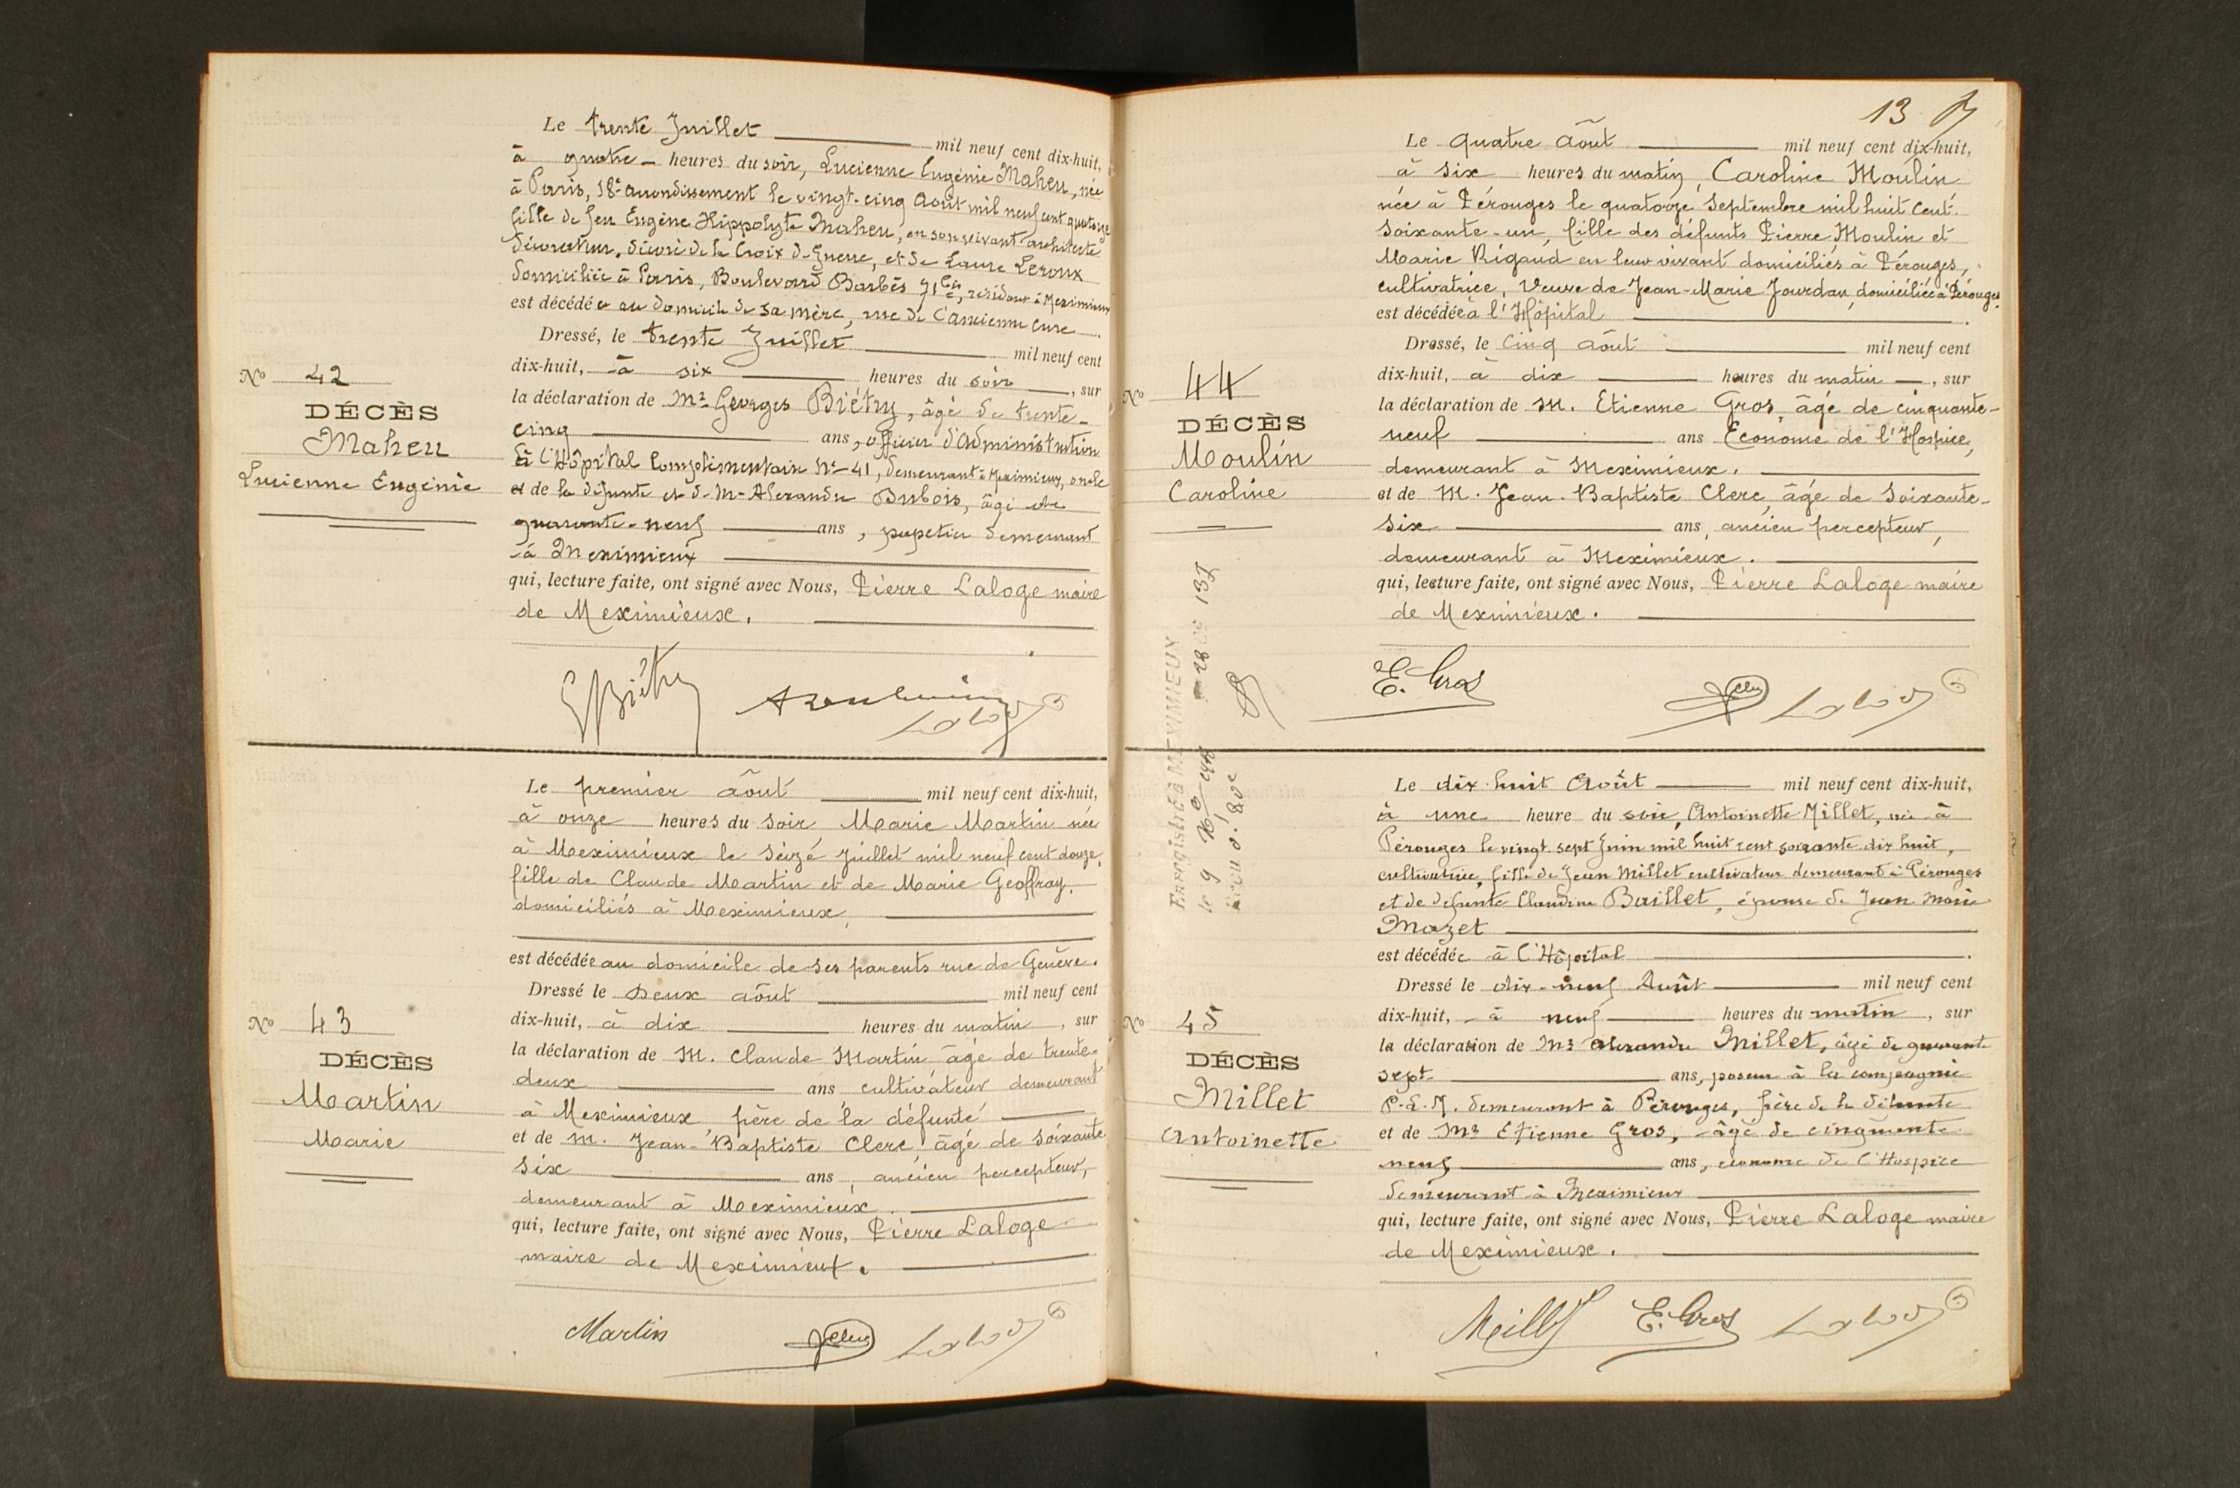 Le trente Juillet mil neuf cent dix-huit,
à quatre heures du soir, Lucienne Eugénie Maheu, née
à Paris, 18e arrondissement le vingt-cinq Août mil neuf cent quatorze
fille de feu Eugène Hippolyte Maheu, en son vivant architecte
décorateur, décoré de la Croix de Guerre, et de Laure Leroux
domiciliée à Paris, Boulevard Barbès 71 bis, résidant à Meximieux
est décédée au domicile de sa mère, rue de l'ancienne cure
Dressé, le trente Juillet mil neuf cent
dix-huit, à six heures du soir, sur
la déclaration de Mr Georges Biétry, âgé de trente-
cinq ans, officier d'administration
à l'Hôpital Complémentaire No 41, demeurant à Meximieux, oncle
et de la défunte et de Mr Alexandre Dubois, âgé de
quarante-neuf ans, papetier demeurant
à Meximieux
qui, lecture faite, ont signé avec Nous, Pierre Laloge maire
de Meximieux.
No 42
DÉCÈS
Maheu
Lucienne Eugénie
GBiétry
Le premier août mil neuf cent dix-huit,
à onze heures du soir Marie Martin née
à Meximieux le seize Juillet mil neuf cent douze,
fille de Claude Martin et de Marie Geoffray.
domiciliés à Meximieux,
est décédée au domicile de ses parents rue de Genève.
Dressé le Deux août mil neuf cent
dix-huit, à dix heures du matin, sur
la déclaration de M. Claude Martin âgé de trente-
deux ans cultivateur demeurant
à Meximieux, père de la défunte
et de M. Jean-Baptiste Clerc, âgé de soixante
six ans, ancien percepteur,
demeurant à Meximieux.
qui, lecture faite, ont signé avec Nous, Pierre Laloge
maire de Meximieux.
No 43
DÉCÈS
Martin
Marie
Martin
13
Le quatre août mil neuf cent dix-huit,
à six heures du matin, Caroline Moulin
née à Pérouges le quatorze Septembre mil huit cent
soixante-un, fille des défunts Pierre Moulin et
Marie Rigaud en leur vivant domiciliés à Pérouges,
cultivatrice, Veuve de Jean-Marie Jourdan, domiciliée à Pérouges
est décédée à l'Hôpital.
Dressé, le Cinq août mil neuf cent
dix-huit, à dix heures du matin, sur
la déclaration de M. Etienne Gros, âgé de cinquante-
neuf ans Econome de l'Hospice,
demeurant à Meximieux.
et de M. Jean-Baptiste Clerc, âgé de soixante-
six ans, ancien percepteur,
demeurant à Meximieux.
qui, lecture faite, ont signé avec Nous, Pierre Laloge maire
de Meximieux.
No 44
DÉCÈS
Moulin
Caroline
E. Gros
Enregistré à MEXIMIEUX
Le dix-huit Août mil neuf cent dix-huit,
à une heure du soir, Antoinette Millet, née à
Pérouges le vingt sept Juin mil huit cent soixante dix huit,
cultivatrice, fille de Jean Millet cultivateur demeurant à Pérouges
et de défunte Claudine Baillet, épouse de Jean Marie
Mazet
est décédée à l'Hôpital.
Dressé le dix-neuf Août mil neuf cent
dix-huit, à neuf heures du matin, sur
la déclaration de Mr Alexandre Millet, âgé de quarante
sept ans, poseur à la compagnie
P.L.M. demeurant à Pérouges, frère de la défunte
et de Mr Etienne Gros, âgé de cinquante
neuf ans, econome de l'Hospice
demeurant à Meximieux
qui, lecture faite, ont signé avec Nous, Pierre Laloge maire
de Meximieux.
No 45
DÉCÈS
Millet
Antoinette
Millet E. Gros